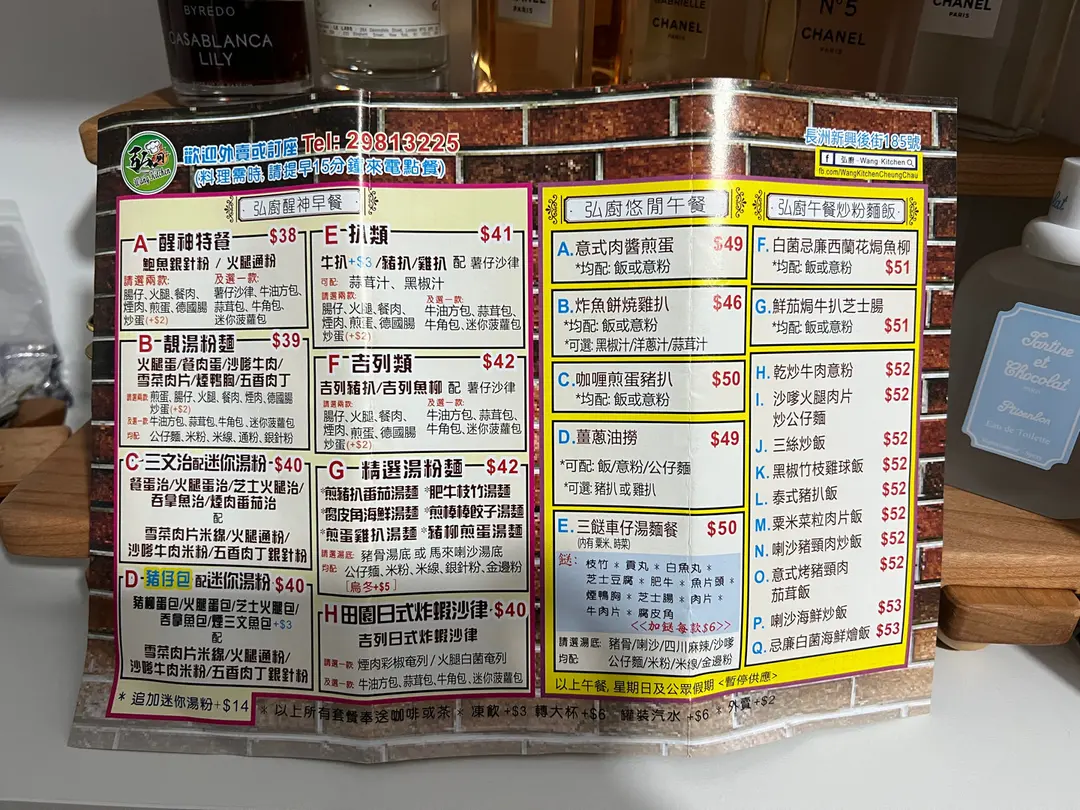 BYREDO
CASABLANCA
LILY
LE LABO
CHANEL
PARIS
GABRIELLE
CHANEL
PARIS
N°5
CHANEL
PARIS
CHANEL
PARIS
弘廚
Wang Kitchen
歡迎外賣或訂座 Tel: 29813225
(料理需時,請提早15分鐘來電點餐)
長洲新興後街185號
弘廚 - Wang Kitchen
fb.com/WangKitchenCheungChau
弘廚醒神早餐
A 醒神特餐 $38
鮑魚銀針粉 / 火腿通粉
請選兩款: 及選一款:
腸仔、火腿、餐肉、 薯仔沙律、牛油方包、
煙肉、煎蛋、德國腸 蒜茸包、牛角包、
炒蛋(+$2) 迷你菠蘿包
B 靚湯粉麵 $39
火腿蛋/餐肉蛋/沙嗲牛肉/
雪菜肉片/煙鴨胸/五香肉丁
請選兩款: 煎蛋、腸仔、火腿、餐肉、煙肉、德國腸
炒蛋(+$2)
及選一款: 牛油方包、蒜茸包、牛角包、迷你菠蘿包
均配: 公仔麵、米粉、米線、通粉、銀針粉
C 三文治配迷你湯粉 $40
餐蛋治/火腿蛋治/芝士火腿治/
吞拿魚治/煙肉番茄治
配
雪菜肉片米線/火腿通粉/
沙嗲牛肉米粉/五香肉丁銀針粉
D 豬仔包配迷你湯粉 $40
豬柳蛋包/火腿蛋包/芝士火腿包/
吞拿魚包/煙三文魚包+$3
配
雪菜肉片米線/火腿通粉/
沙嗲牛肉米粉/五香肉丁銀針粉
* 追加迷你湯粉+$14
E 扒類 $41
牛扒+$3/豬扒/雞扒 配 薯仔沙律
可配: 蒜茸汁、黑椒汁
請選兩款: 及選一款:
腸仔、火腿、餐肉、 牛油方包、蒜茸包、
煙肉、煎蛋、德國腸 牛角包、迷你菠蘿包
炒蛋(+$2)
F 吉列類 $42
吉列豬扒/吉列魚柳 配 薯仔沙律
請選兩款: 及選一款:
腸仔、火腿、餐肉、 牛油方包、蒜茸包、
煙肉、煎蛋、德國腸 牛角包、迷你菠蘿包
炒蛋(+$2)
G 精選湯粉麵 $42
*煎豬扒番茄湯麵 *肥牛枝竹湯麵
*腐皮角海鮮湯麵 *煎棒棒餃子湯麵
*煎蛋雞扒湯麵 *豬柳煎蛋湯麵
請選湯底: 豬骨湯底 或 馬來喇沙湯底
均配: 公仔麵、米粉、米線、銀針粉、金邊粉
[烏冬+$5]
H 田園日式炸蝦沙律 $40
吉列日式炸蝦沙律
請選一款: 煙肉彩椒奄列 / 火腿白菌奄列
及選一款: 牛油方包、蒜茸包、牛角包、迷你菠蘿包
* 以上所有套餐奉送咖啡或茶 * 凍飲+$3 轉大杯+$6 罐裝汽水 +$6 * 外賣+$2
弘廚悠閒午餐
A.意式肉醬煎蛋 $49
*均配: 飯或意粉
B.炸魚餅燒雞扒 $46
*均配: 飯或意粉
*可選: 黑椒汁/洋蔥汁/蒜茸汁
C.咖喱煎蛋豬扒 $50
*均配: 飯或意粉
D.薑蔥油撈 $49
*可配: 飯/意粉/公仔麵
*可選: 豬扒 或 雞扒
E.三餸車仔湯麵餐 $50
(內有粟米,時菜)
餸: 枝竹 * 貢丸 * 白魚丸 *
芝士豆腐 * 肥牛 * 魚片頭 *
煙鴨胸 * 芝士腸 * 肉片 *
牛肉片 * 腐皮角
<<加餸每款$6>>
請選湯底: 豬骨/喇沙/四川麻辣/沙嗲
均配: 公仔麵/米粉/米線/金邊粉
以上午餐, 星期日及公眾假期 <暫停供應>
弘廚午餐炒粉麵飯
F.白菌忌廉西蘭花焗魚柳
*均配: 飯或意粉 $51
G.鮮茄焗牛扒芝士腸
*均配: 飯或意粉 $51
H. 乾炒牛肉意粉 $52
I. 沙嗲火腿肉片 $52
炒公仔麵
J. 三絲炒飯 $52
K. 黑椒竹枝雞球飯 $52
L. 泰式豬扒飯 $52
M. 粟米菜粒肉片飯 $52
N. 喇沙豬頸肉炒飯 $52
O. 意式烤豬頸肉 $52
茄茸飯
P. 喇沙海鮮炒飯 $53
Q. 忌廉白菌海鮮燴飯 $53
Tartine
et
Chocolat
Ptisenbon
Eau de Toilette